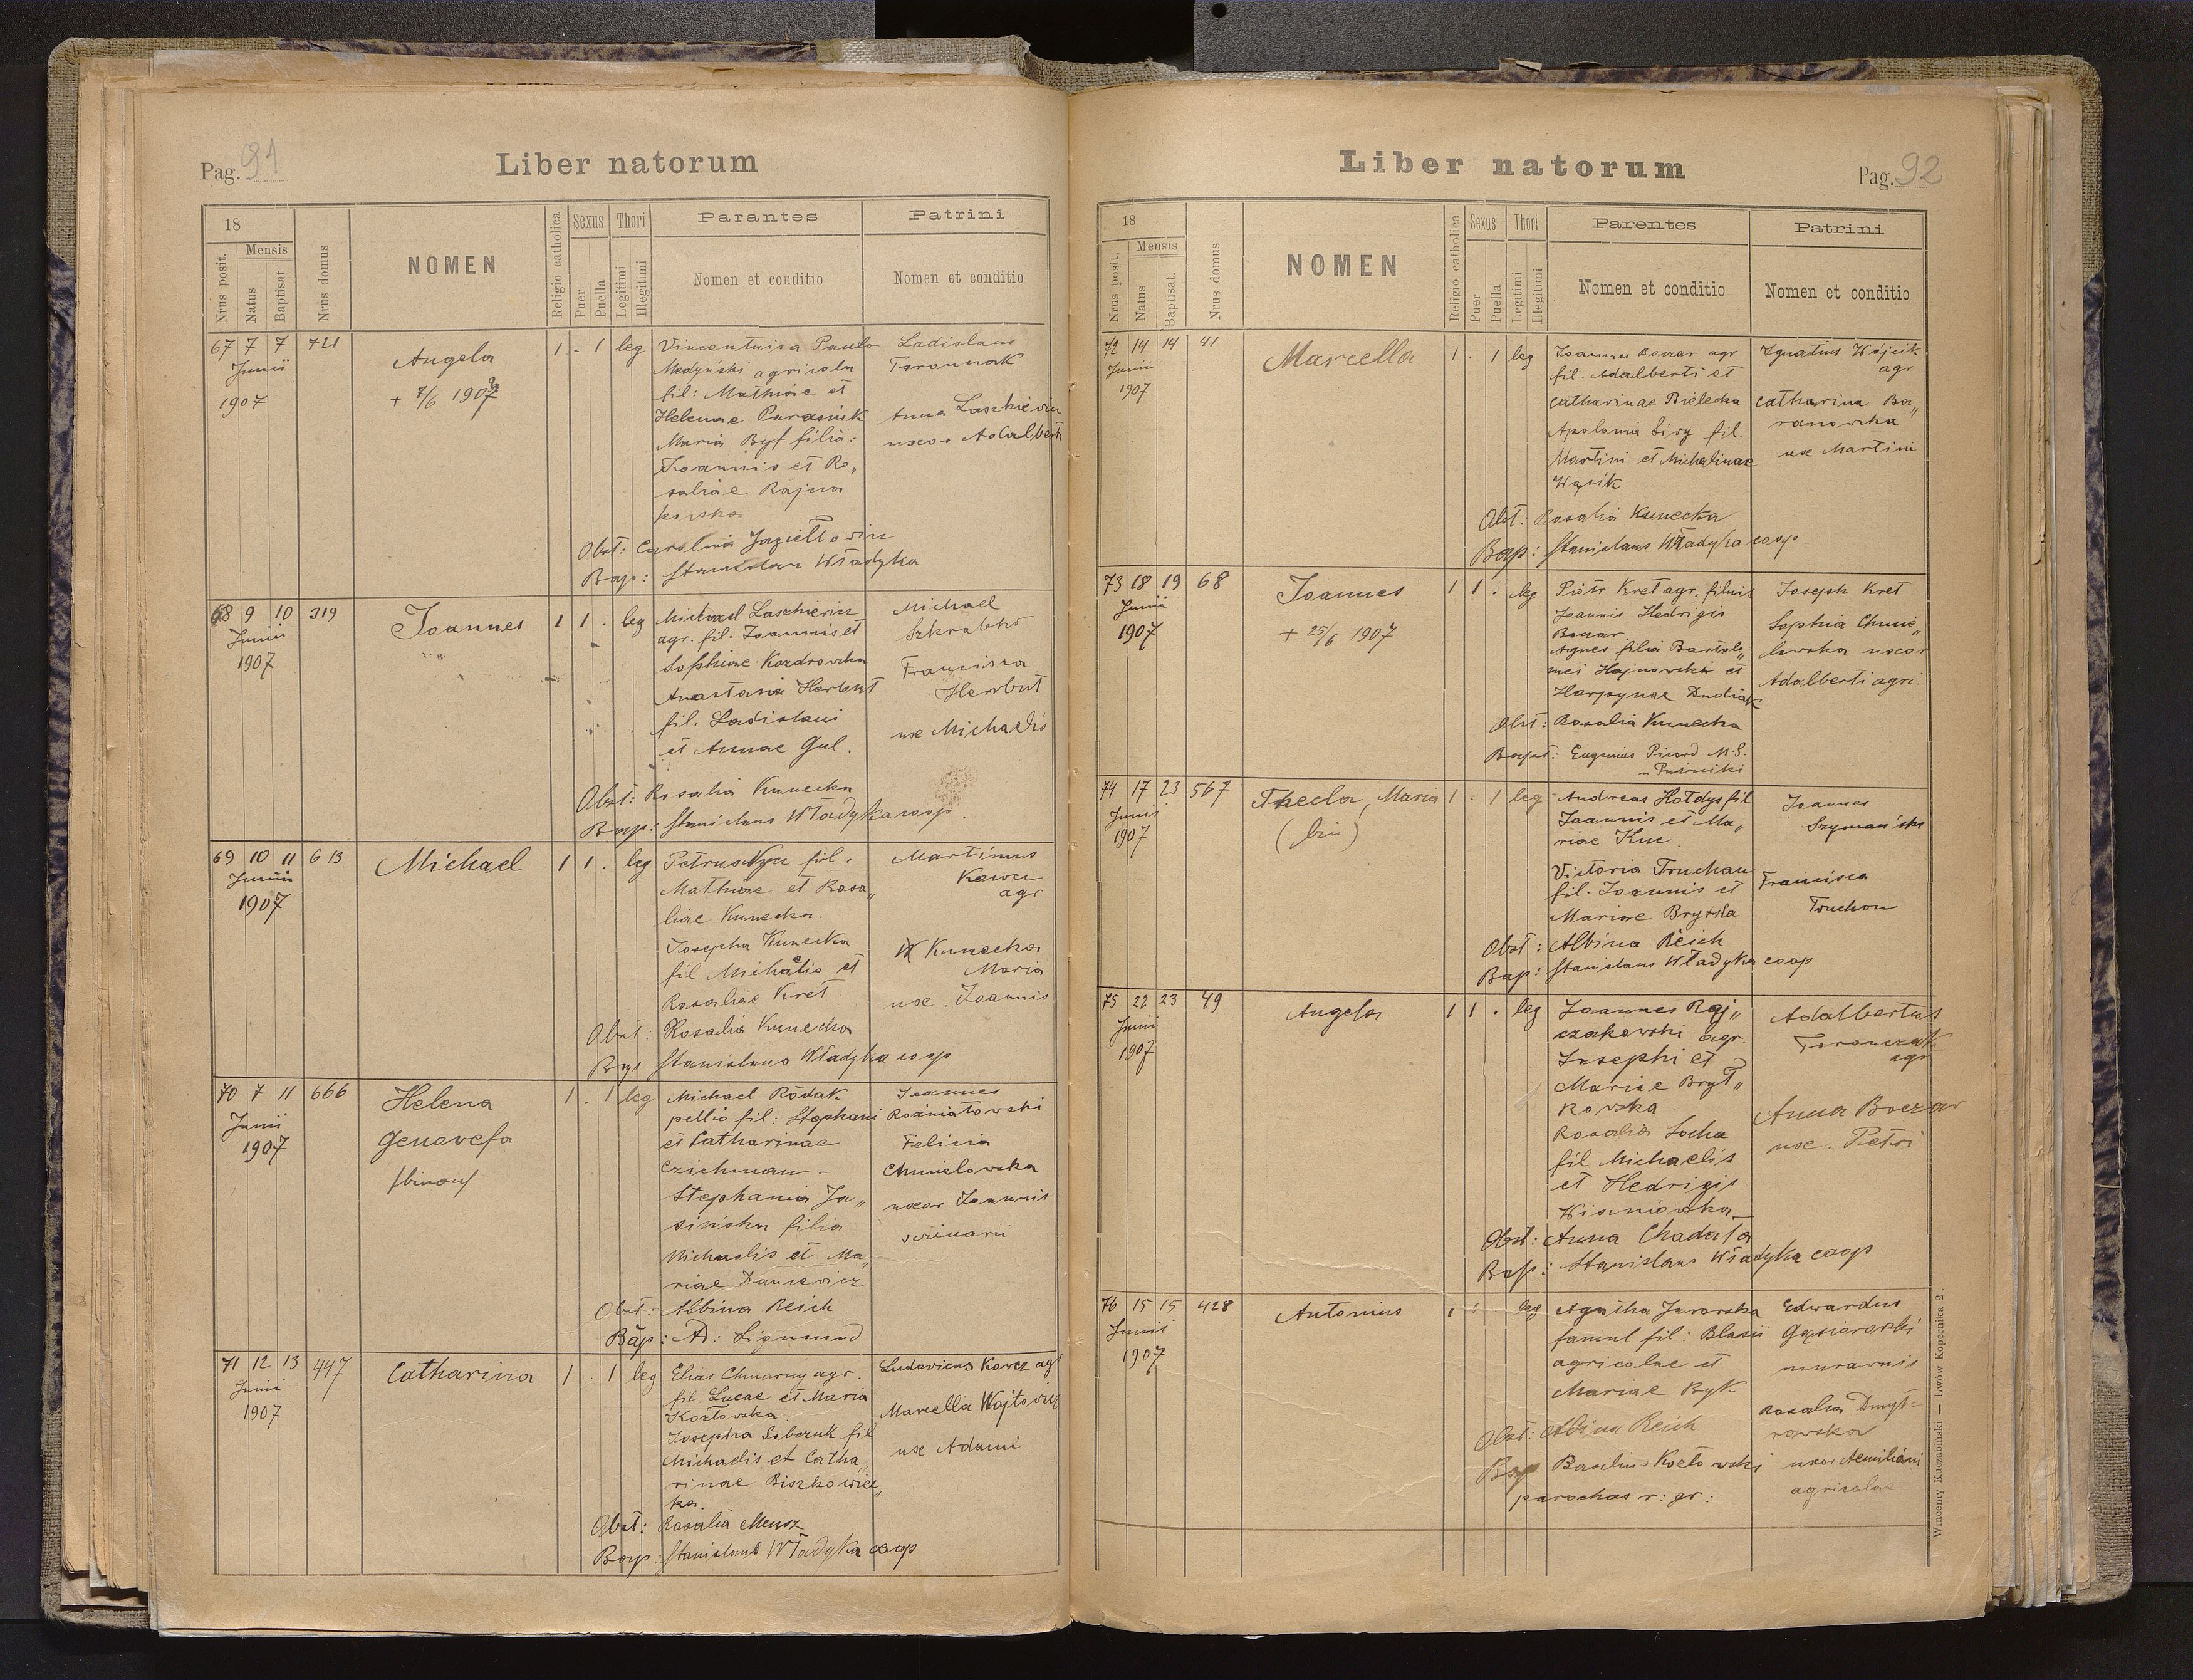 Pag. 91
Liber natorum
18
Nrus posit.
Mensis
Natus
Baptisat
Nrus domus
NOMEN
Religio catholica
Sexus
Puer
Puella
Thori
Legitimi
Illegitimi
Parantes
Nomen et conditio
Patrini
Nomen et conditio
67 7 7
Junii
1907
Angela
+ 7/6 1907
1 . 1 leg
Medyński agricola
fil: Mathiae et
Helenae
Maria Byk filia
Joannis et Ro„
saliae
Ladislaus
Anna Laszkiewicz
uxor Adalberti
Obst: Carolina
Bap: Stanislaus Władyka
68 9 10 319
Junii
1907
Joannes
1 1 . leg
Michael Laszkiewicz
agr. fil. Joannis et
Sophiae
Anastasia Herbut
fil. Ladislaui
et Annae Gul.
Michael
Francisca
Herbut
ux Michaelis
Obst: Rosalia Kunecka
Bap: Stanislaus Władyka coop.
69 10 11 613
Junii
1907
Michael
1 1 . leg
Petrus fil.
Mathiae et Rosa„
liae Kunecka.
Josepha Kunecka
fil Michaelis et
Rosaliae Kret
Martinus
agr
Kunecka
Maria
ux. Joannis
Obst: Rosalia Kunecka
Bap Stanislaus Władyka coop
70 7 11 666
Junii
1907
Helena
Genovefa
1 . 1 leg
Michael Rödak
pellio fil: Stephani
et Catharinae
Czichman –
Stephania Ja„
sińska filia
Michaelis et Ma„
riae
Joannes
Rozniatowski
Felicia
Chmielowska
uxor Joannis
Obst: Albina Reich
Bap: A: Sigmund
71 12 13 447
Junii
1907
Catharina
1 . 1 leg
Elias agr.
fil. Lucae et Maria
Kozłowska
Josepha fil
Michaelis et Catha„
rinae Biszkowiec„
ka.
Ludovicus Korcz agr
Marcella Wojtowicz
ux Adami
Obst: Rosalia Mensz
Bap: Stanislaus Władyka coop
Liber natorum
Pag. 92
18
Nrus posit.
Mensis
Natus
Baptisat.
Nrus domus
NOMEN
Religio catholica
Sexus
Puer
Puella
Thori
Legitimi
Illegitimi
Parentes
Nomen et conditio
Patrini
Nomen et conditio
72 14 14 41
Junii
1907
Marcella
1 . 1 leg
Joannes Boczar agr
fil. Adalberti et
Catharinae Bielecka
Apolonia fil.
Martini et Michalinae
Wąsik
Ignatius Wójcik
agr
Catharina Ba„
ranowska
ux Martini
Obst: Rosalia Kunecka
Bap: Stanislaus Władyka coop
73 18 19 68
Junii
1907
Joannes
+ 25/6 1907
1 1 . leg
Piotr Kret agr. filius
Joannis Hedrigis
Boczar
Agnes filia Bartolo„
mei Hajnowski et
Joseph Kret
Sophia Chmie„
lowska uxor
Adalberti agri.
Obst: Rosalia Kunecka
Bapt: Eugenius M.S.
74 17 23 567
Junii
1907
Thecla, Maria
(bin)
1 . 1 leg
Andreas Hołdys fil
Joannis et Ma„
riae Kuc
Victoria Truchan
fil. Joannis et
Mariae
Joannes
Szymański
Francisca
Truchon
Obst: Albina Reich
Bap: Stanislaus Władyka coop
75 22 23 49
Junii
1907
Angela
1 1 . leg
Joannes Raj„
czakowski agr.
Josephi et
Mariae Bryt„
kowska
Rosalia Socha
fil Michaelis
et Hedrigis
Wiśniowska
Adalbertus
agr
Anna Boczar
ux. Petri
Obst: Anna
Bap: Stanislaus Władyka coop
76 15 15 428
Junii
1907
Antonius
leg
Agatha Jaworska
famul fil: Blasii
agricolae et
Mariae Byk
Edwardus
Rosalia Dmyt=
rowska
uxor Aemiliani
agricolae
Obst: Albina Reich
Bap Basilius
parochus r: gr:
Wincenty Kuczabiński — Lwów Kopernika 2.